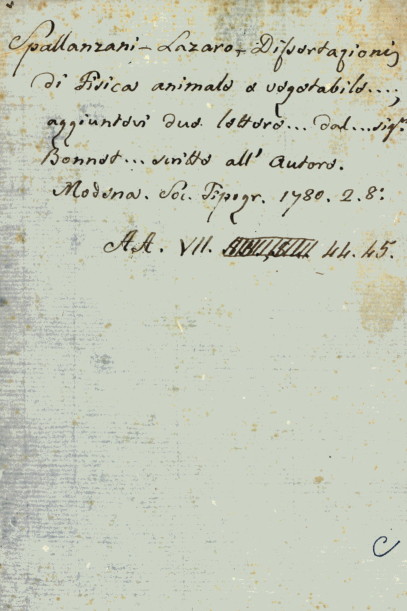 Spallanzani - Lazaro - Dissertazioni
di Fisica animale e vegetabile....,
aggiuntevi due lettere... dal... sigr.
Bonnet... scritte all' Autore.
Modena. Soc. Tipogr. 1780. 2. 8:
AA. VII. 44. 45.
C